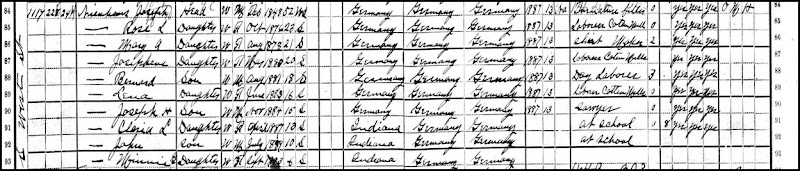 84 1117 228 241 Joseph Head W M Feb 1848 52 Wd Germany Germany Germany 1887 13 Na Furniture 0 yes yes yes O M H 84
85 — Rosa L Daughter W F Oct 1876 23 S Germany Germany Germany 1887 13 Laborer Cotton Mills 0 yes yes yes
86 — Mary A Daughter W F Aug 1878 21 S Germany Germany Germany 1887 13 Shirt Maker 2 yes yes yes 86
87 — Josephine Daughter W F 20 S Germany Germany Germany 1887 13 Cotton Mills 0 yes yes yes 87
88 — Bernard Son W M Aug 1881 18 S Germany Germany Germany 1887 13 Day Laborer 3 yes yes yes 88
89 — Lena Daughter W F June 1883 16 S Germany Germany Germany 1887 13 Cotton Mills 0 yes yes yes 89
90 — Joseph H Son W M Nov 1884 15 S Germany Germany Germany 1887 13 0 yes yes yes 90
91 — Daughter W F April 1887 13 S Indiana Germany Germany at school 8 yes yes yes 91
92 — John Son W M July 10 S Indiana Germany Germany at school 92
93 — Minnie Daughter W F Sept 6 S Indiana Germany Germany 93
West St